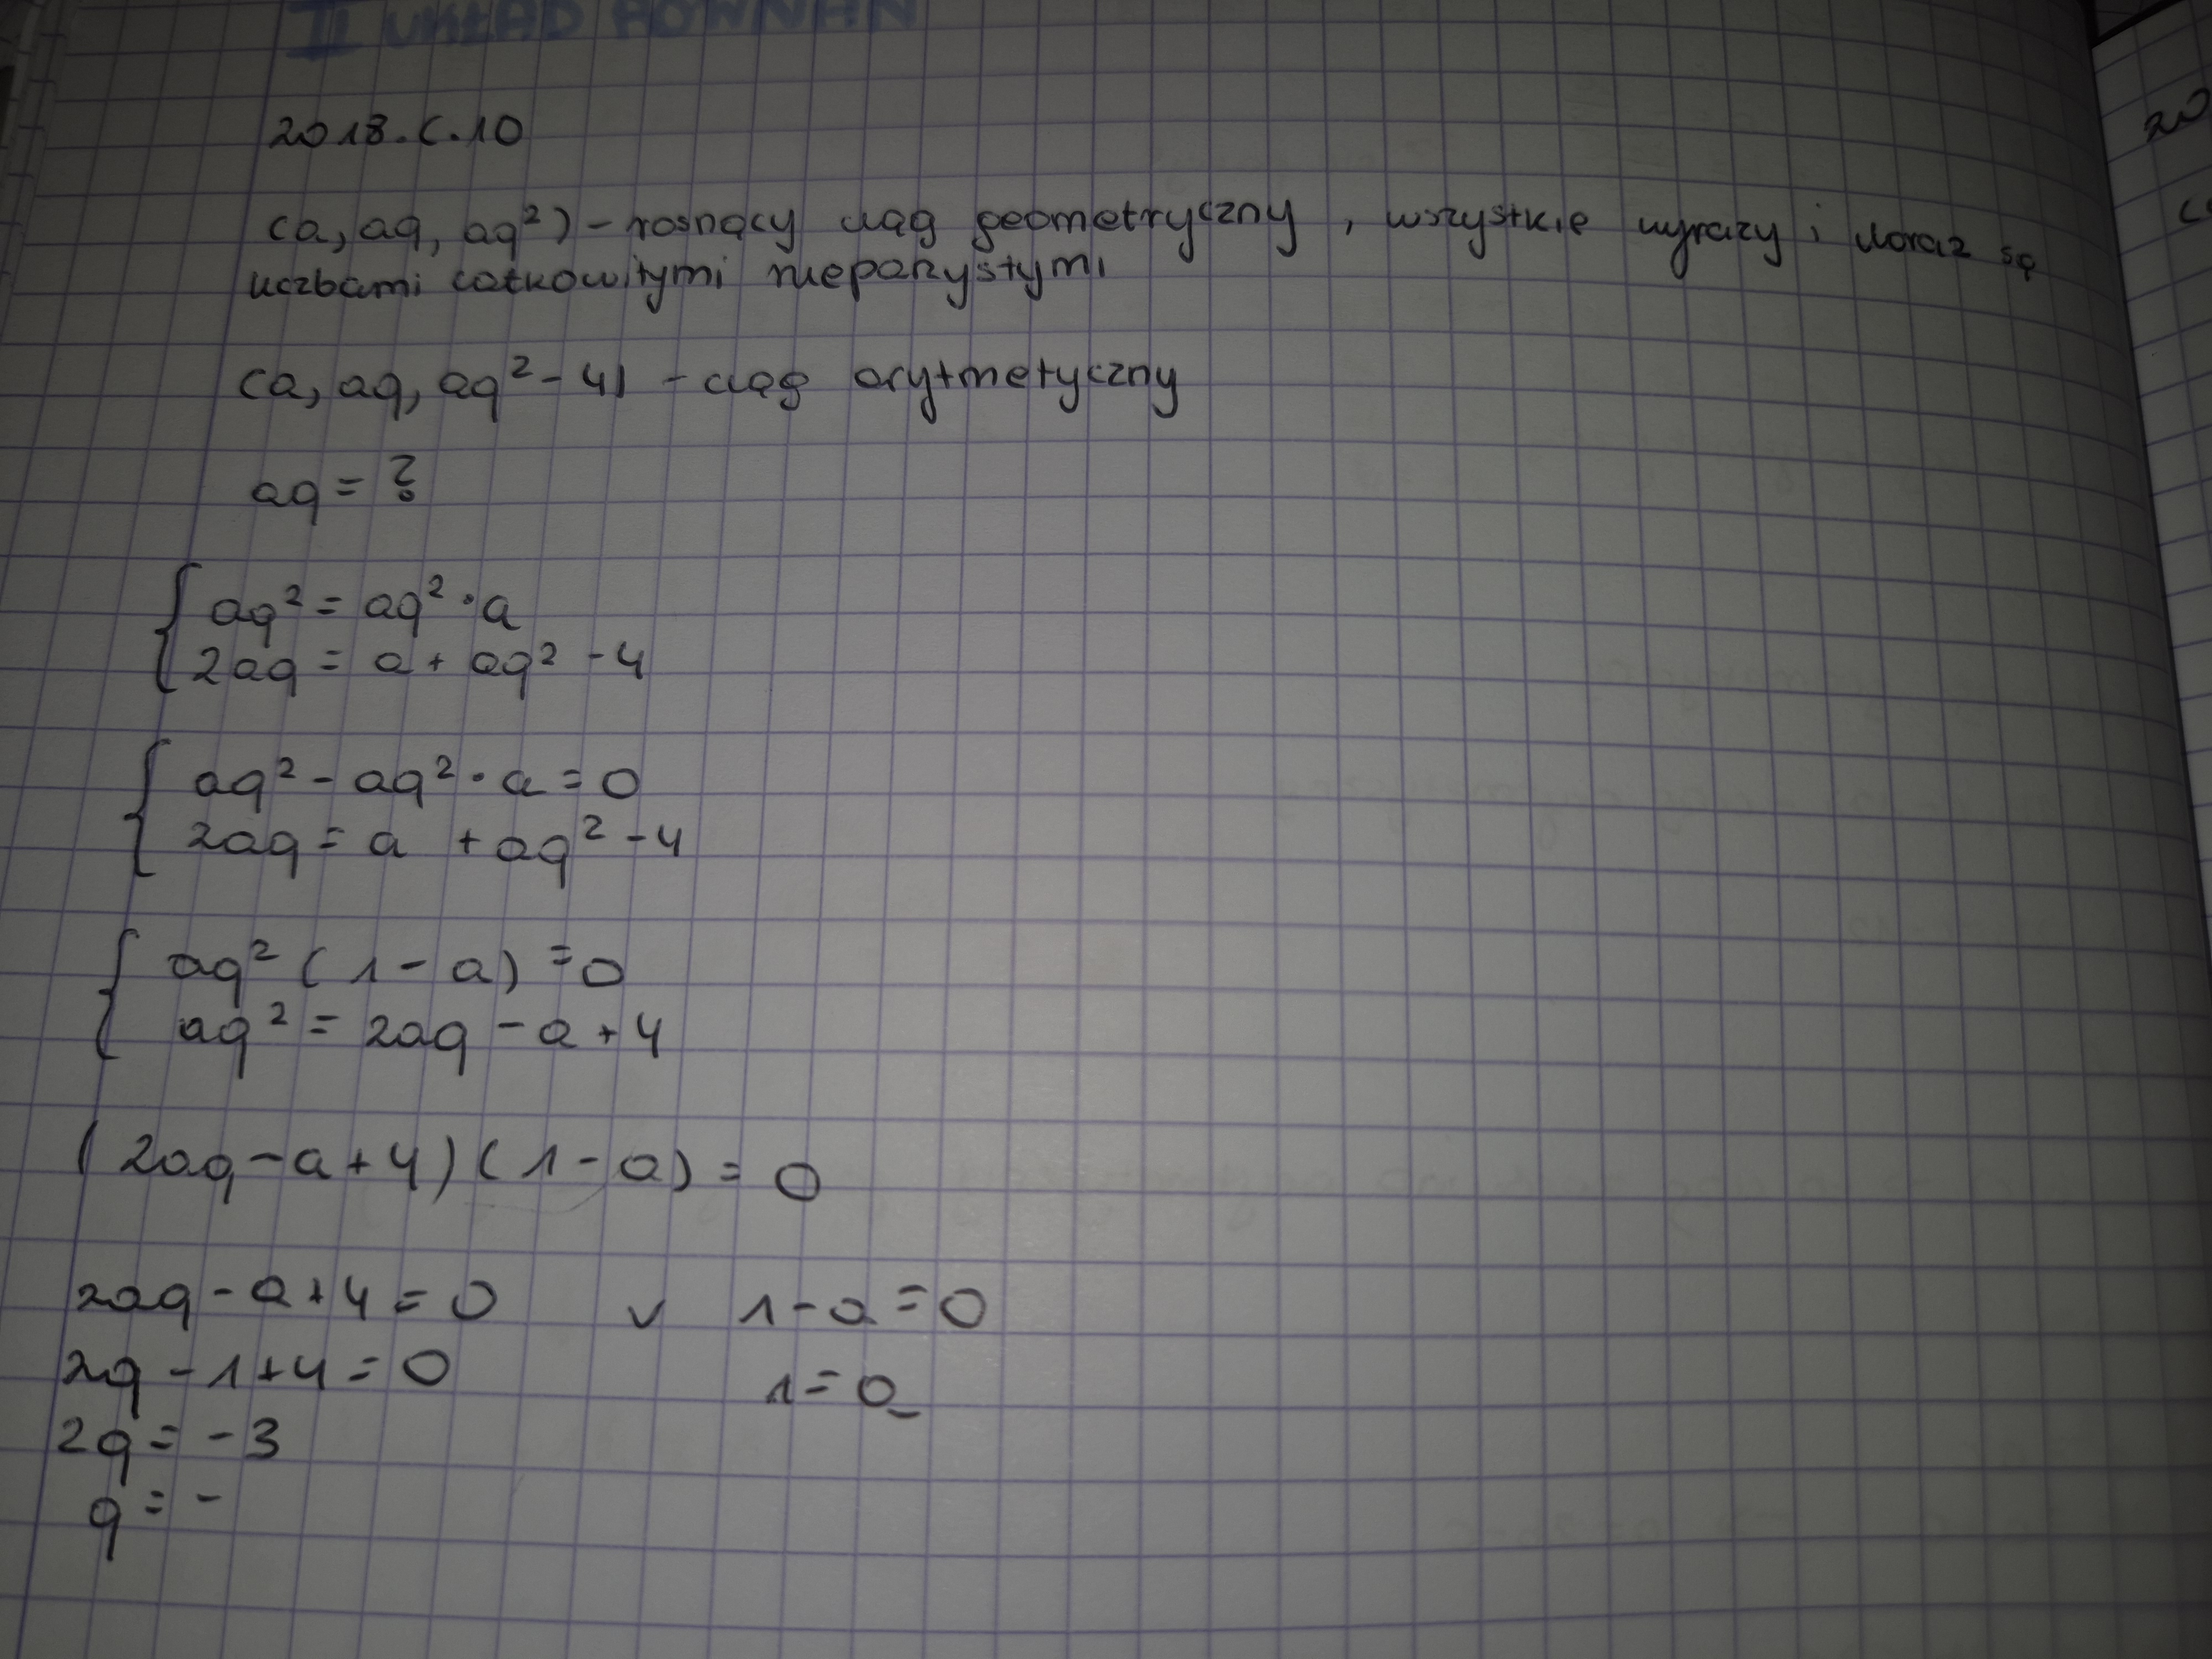 II UKŁAD RÓWNAŃ
2018.C.10
(a, aq, aq²) - rosnący ciąg geometryczny, wszystkie wyrazy i iloraz są
liczbami całkowitymi nieparzystymi
(a, aq, aq² - 4) - ciąg arytmetyczny
aq = ?
aq² = aq² · a
2aq = a + aq² - 4
aq² - aq² · a = 0
2aq = a + aq² - 4
aq² (1 - a) = 0
aq² = 2aq - a + 4
(2aq - a + 4)(1 - a) = 0
2aq - a + 4 = 0 v 1 - a = 0
2q - 1 + 4 = 0 1 = a
2q = -3
q = -
20